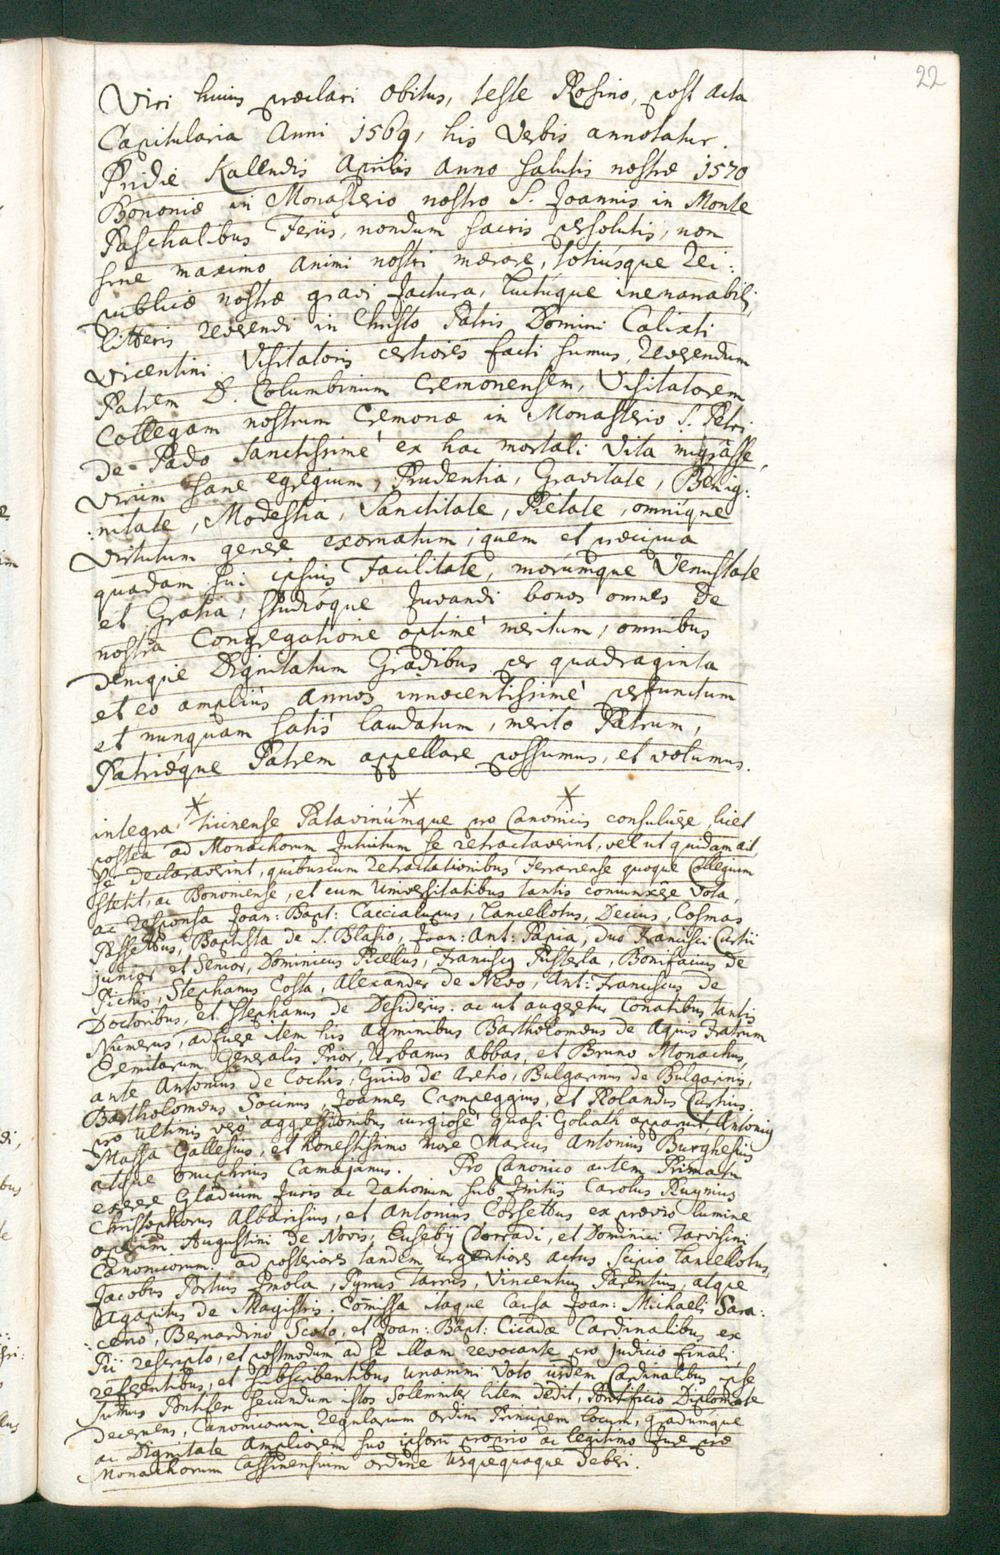 22
Viri huius præclari obitus, teste Rosino, post acta
Capitularia Anni 1569, his Verbis annotatur.
Pridie Kallendis Aprilis Anno Salutis nostræ 1570
Bononiæ in Monasterio nostro S. Joannis in Monte
Paschalibus Feriis, nondum sacris persolutis, non
sine maximo Animi nostri mærore, totiusque Rei:
publicæ nostræ gravi Jactura, Luctuque inenarrabili,
Litteris reverendi in Christo Patris Domini Calixti
Vicentini Visitatoris certiores facti sumus, Reverendum
Patrem D. Columbinum Cremonensem, Visitatorem
Collegam nostrum Cremonæ in Monasterio S. Petri
de Pado Sanctissimè ex hac mortali Vita migrâsse,
Virum sane egregium, Prudentia, Gravitate, Benig:
:nitate, Modestia, Sanctitate, Pietate, omnique
Virtutum genere exornatum, quem et præcipua
quadam sui ipsius Facilitate, morumque Venustate
et Gratia, studióque Juvandi bonos omnes de
nostra Congregatione optimè meritum, omnibus
denique Dignitatum Gradibus per quadraginta
et eo amplius annos innocentissimè perfunctum
et nunquam satis laudatum, meritò Patrum,
Patriæque Patrem appellare possumus, et volumus.
* * *
integra Ticinense Patavinumque pro Canonicis consuluêre, licet
postea ad Monachorum Intuitum se retractaverint, vel ut quidam ait,
se declaraverint, quibuscum retractationibus Ferrariense quoque Collegium
stetit, ac Bononiense, et cum Universitatibus tantis conjunxêre Vota,
ac Responsa Joan: Bapt: Caccialupus, Lancellotus, Decius, Cosmas
Bapтista de S. Blasio, Joan: Ant: Papia, duo Francisci Curtii
junior et Senior, Dominicus Picellus, Franciscus Pusterla, Bonifacius de
Stephanus Costa, Alexander de Nevo, Ant: Franciscus de
Doctoribus, et Stephanus de Desiderijs: ac ut augeretur Conatibus tantis
Numerus, adfuere item his agminibus Bartholomæus de Aquis Fratrum
Eremitarum Generalis Prior, Urbanus Abbas, et Bruno Monachus,
ante Antonius de Cochis, Guido de Aretio, Bulgarinus de Bulgarinis,
Bartholomæus Socinus, Joannes Campeggius, et Rolandus Curtius,
pro Ultimis verò aggressionibus iurgiosè quasi Goliath apparuit Antonius
Massa Gallesius, et honestissimo more Marcus Antonius Burghesius
atque Onuphrius Camajanus. Pro Canonico autem Primatu
exere Gladium Juris ac rationum sub Initiis Carolus Ruynus
Christophorus Albarisius, et Antonius Corsettus ex prævio lumine
operum Augustini de Novis, Eusebij Corradi, et Dominici Tarvisini
Canonicorum: ad posteriores tandem urgentiores actus Scipio Lancellotus,
Jacobus Portius Imola, Pyrrus Tarrus, Vincentius Parentius, atque
Agapitus de Magistris. Com̃issa itaque Causa Joan: Michaeli Sara:
:ceno, Bernardino Scoto, et Joan: Bapt: Cicadæ Cardinalibus ex
Pii rescripto, et postmodum ad se illam revocante pro Judicio finali,
referentibus, et subscribentibus unanimi Voto iisdem Cardinalibus ipse
Sum̃us Pontifex secundum istos solemniter litem dedit, Pontificio Diplomate
decernens, Canonicorum Regularium Ordini Principem locum, gradumque
ac Dignitate Ampliorem suo ipsorum proprio ac legitimo Jure præ
Monachorum Cassinensium ordine usquequaque deberi.